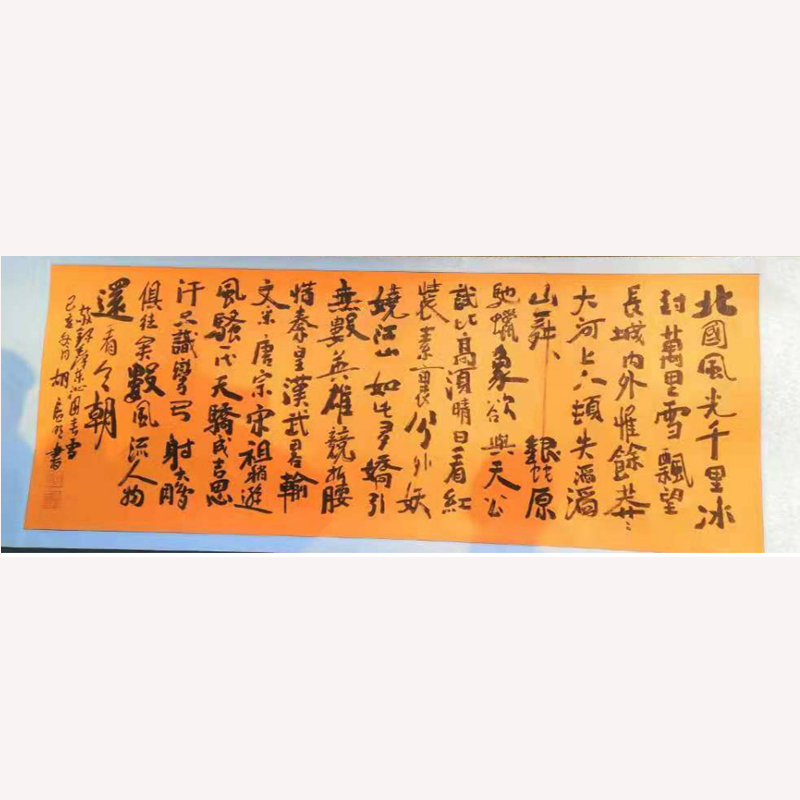 北國風光千里冰
封萬里雪飄望
長城内外惟餘莽〻
大河上下頓失滔滔
山舞銀蛇原
馳蠟象欲與天公
試比高須晴日看紅
裝素裹分外妖
嬈江山如此多嬌引
無數英雄競折腰
惜秦皇漢武畧輸
文采唐宗宋祖稍遜
風騷一代天驕成吉思
汗只識彎弓射大鵰
俱往矣數風流人物
還看今朝
敬録毛澤東沁園春雪
己亥冬月胡書